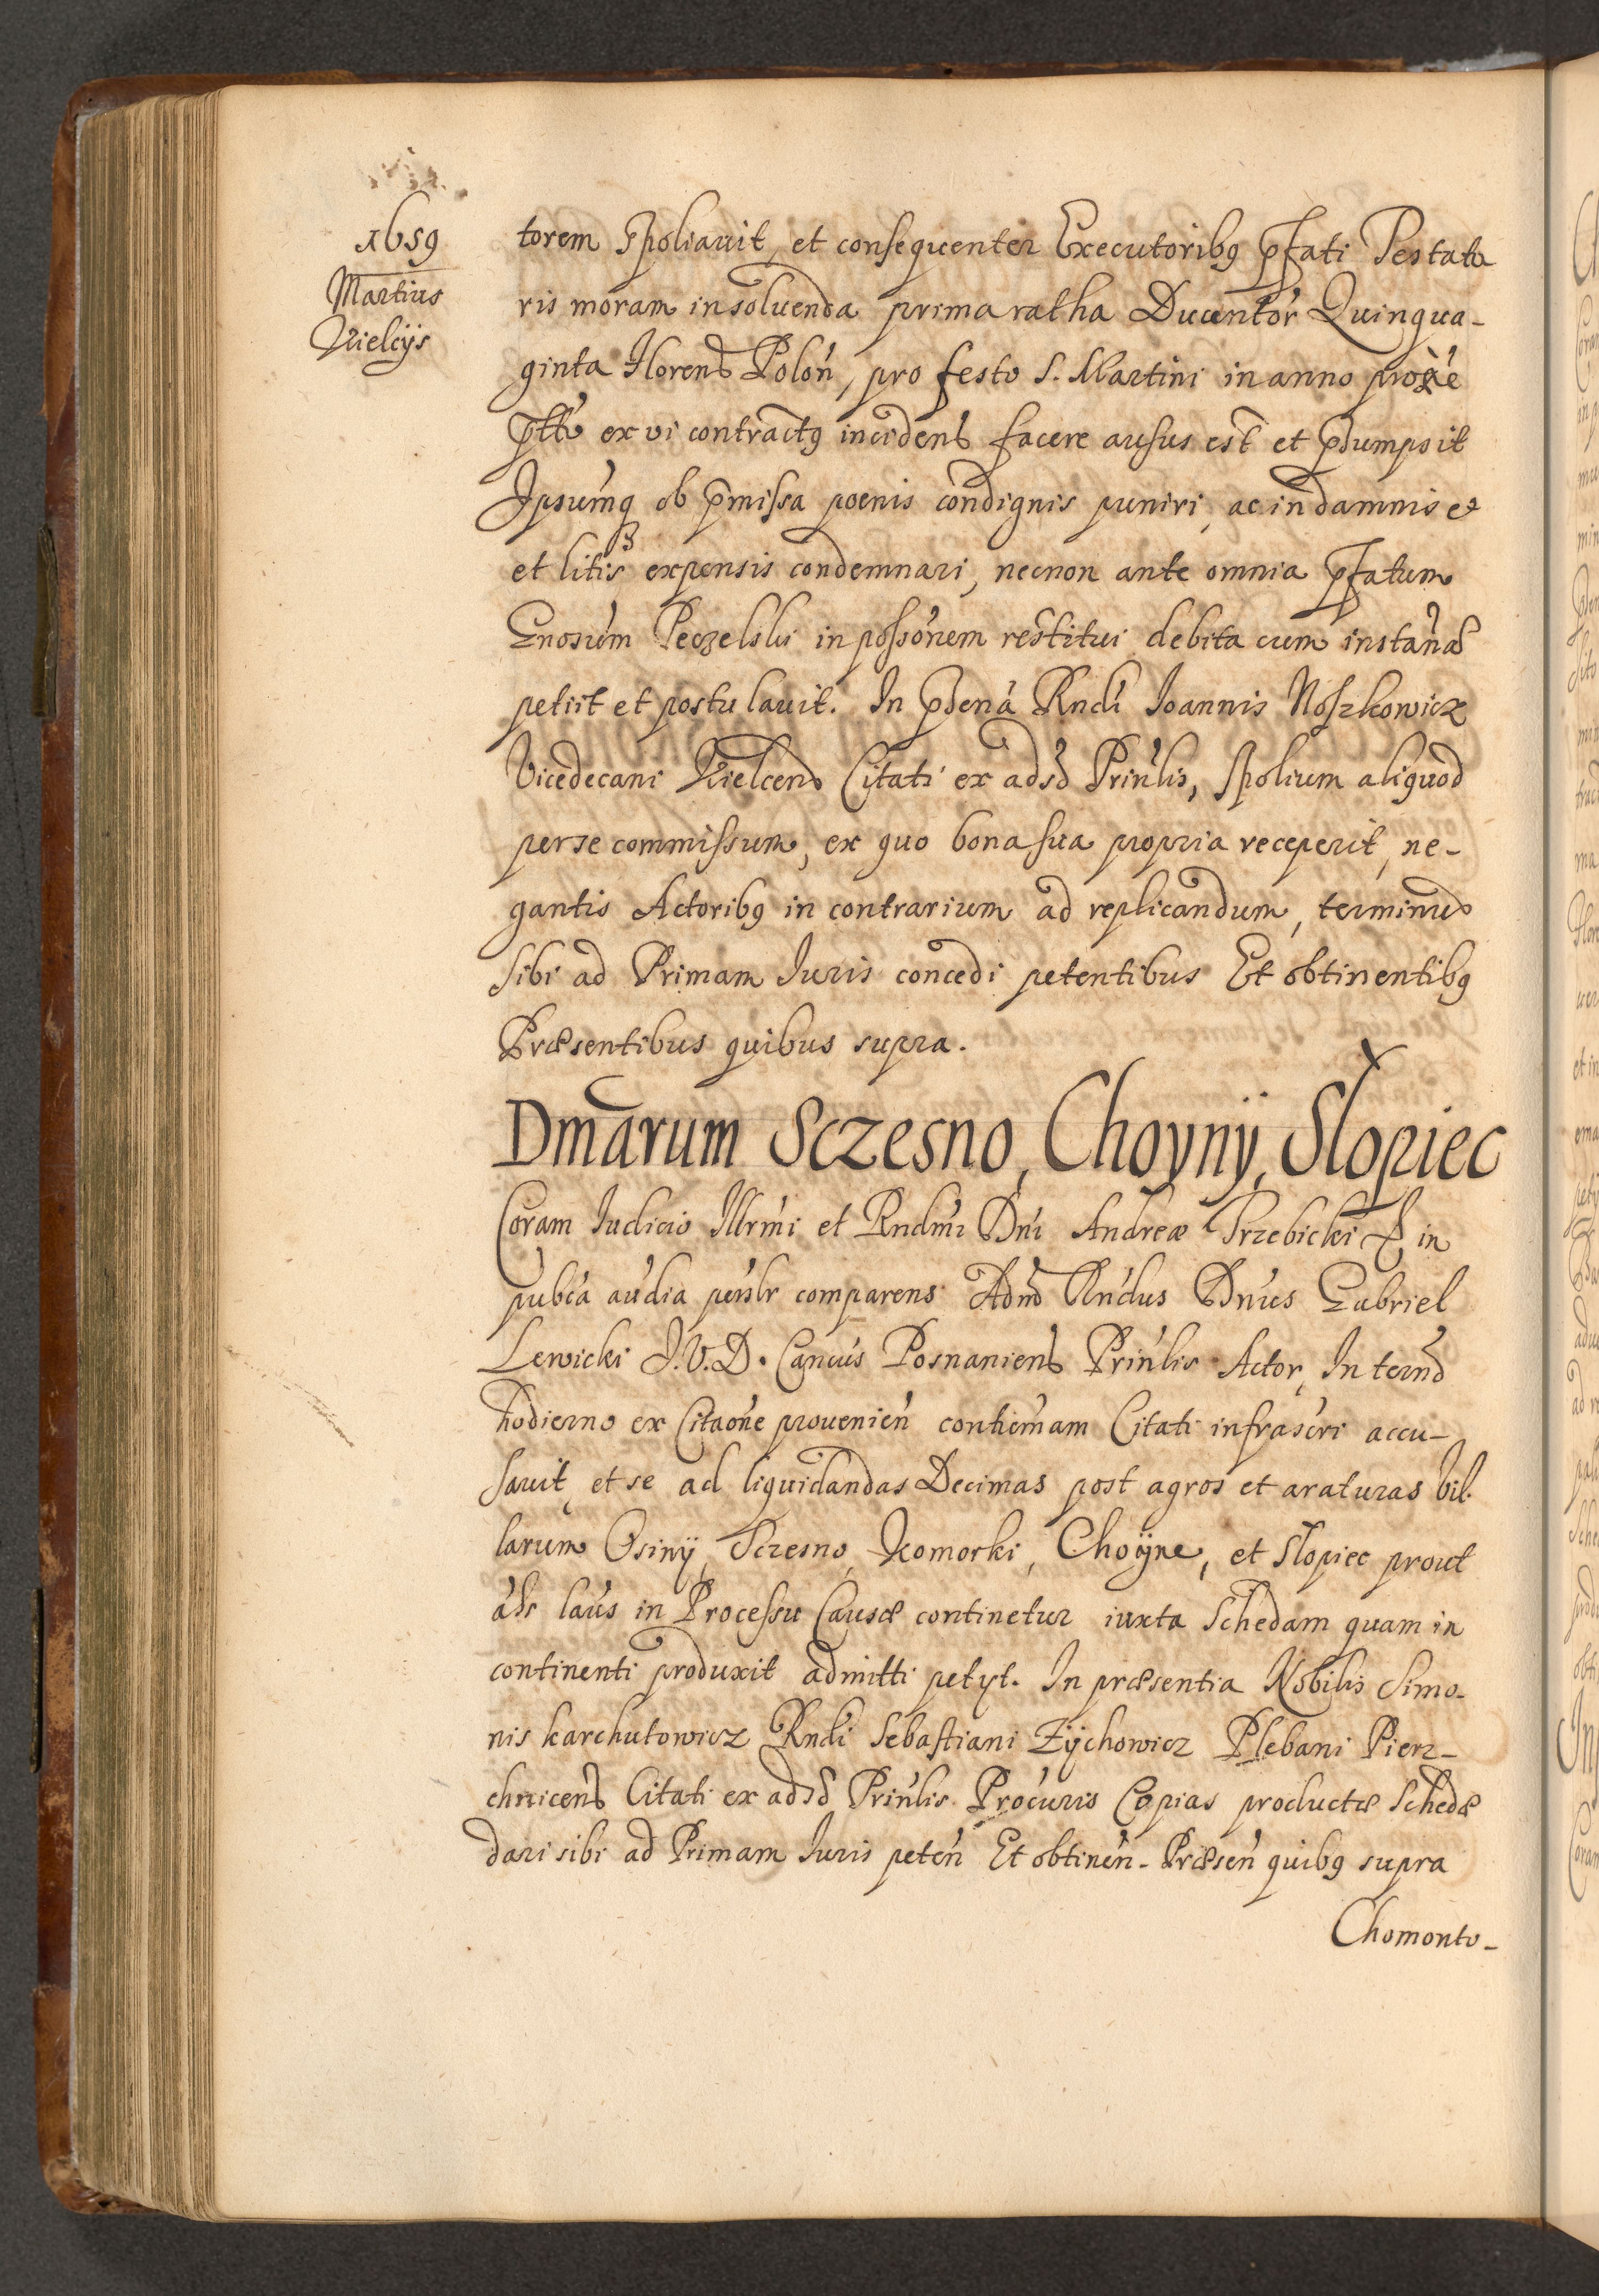 1659
Martius
Kielcijs
torem spoliavit, et consequenter Executoribq pfati Testato
ris moram in soluenda prima ratha Ducentor Quinqua-
ginta Florens Polon, pro festo S. Martini in anno proxe
ptto ex vi contractq incidens facere ausus est et psumpsit
Ipsumq ob pmissa poenis condignis puniri, ac in damnis et
et litis expensis condemnari, necnon ante omnia pfatum
Gnosum Peczelski in possonem restitui debita cum instana
petiit et postulauit. In psena Rndi Ioannis Noszkowicz
Vicedecani Kielcens Citati ex adso Prinlis, spolium aliquod
per se commissum, ex quo bona sua propria receperit, ne-
gantis Actoribq in contrarium ad replicandum, terminum
sibi ad Primam Iuris concedi petentibus Et obtinentibq
Præsentibus quibus supra.
Dmarum Sczesno, Choyny, Slopiec
Coram Iudicio Illrmi et Rndmi Dni Andreæ Trzebicki & in
pubca audia psnlr comparens Admd Rndus Dnus Gabriel
Lewicki I.V.D. Cancus Posnaniens Prinlis Actor, In termo
hodierno ex Citaone prouenien contiemam Citati infrascri accu-
sauit, et se ad liquidandas Decimas post agros et araturas Vil-
larum Osiny, Sczesno, Komorki, Choyne, et Slopiec prout
als laus in Processu Causæ continetur iuxta Schedam quam in
continenti produxit admitti petyt. In præsentia Nobilis Simo-
nis Karchutowicz Rndi Sebastiani Zychowicz Plebani Pierz-
chnicens Citati ex adso Prinlis Procuris Copias productæ Schedæ
dari sibi ad Primam Iuris peten Et obtinen- Præsen quibq supra
Chomonto-